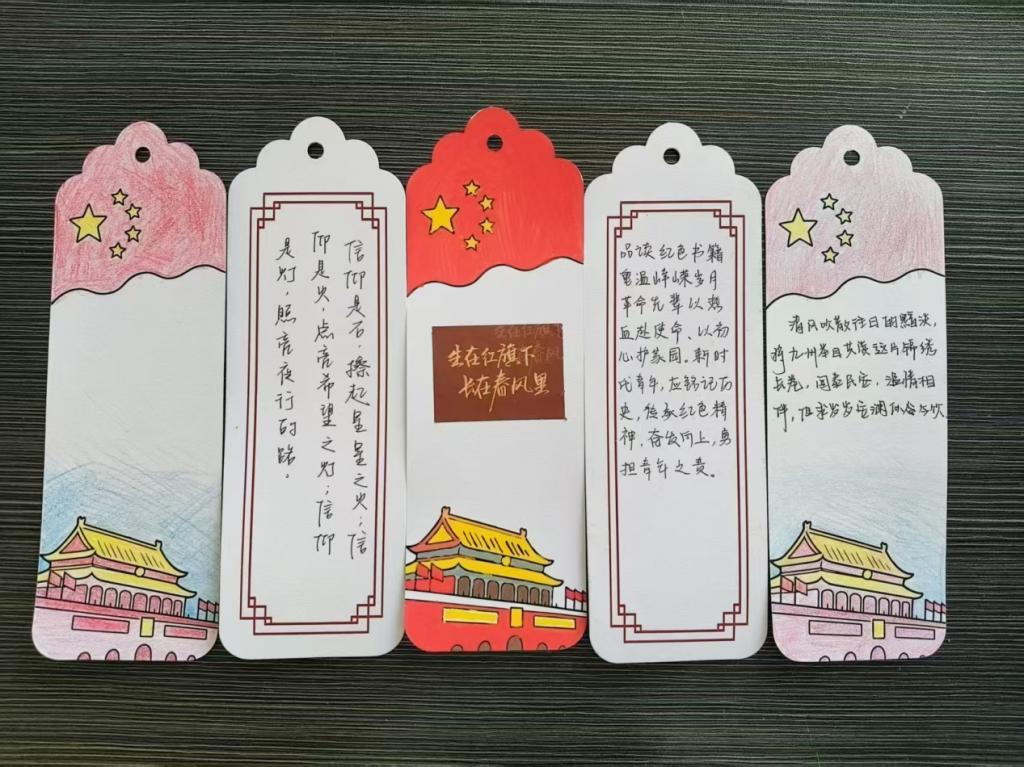 信仰是石，擦起星星之火；信
仰是火，点亮希望之灯；信仰
是灯，照亮夜行的路。
生在红旗下
生在红旗下
长在春风里
品读红色书籍
重温峥嵘岁月
革命先辈以热
血赴使命、以初
心护家园。新时
代青年，应铭记历
史，传承红色精
神，奋发向上，勇
担青年之责。
清风吹散往日的黯淡，
将九州举目共读这片锦绣
长卷，国泰民安，温情相
伴，但求岁岁